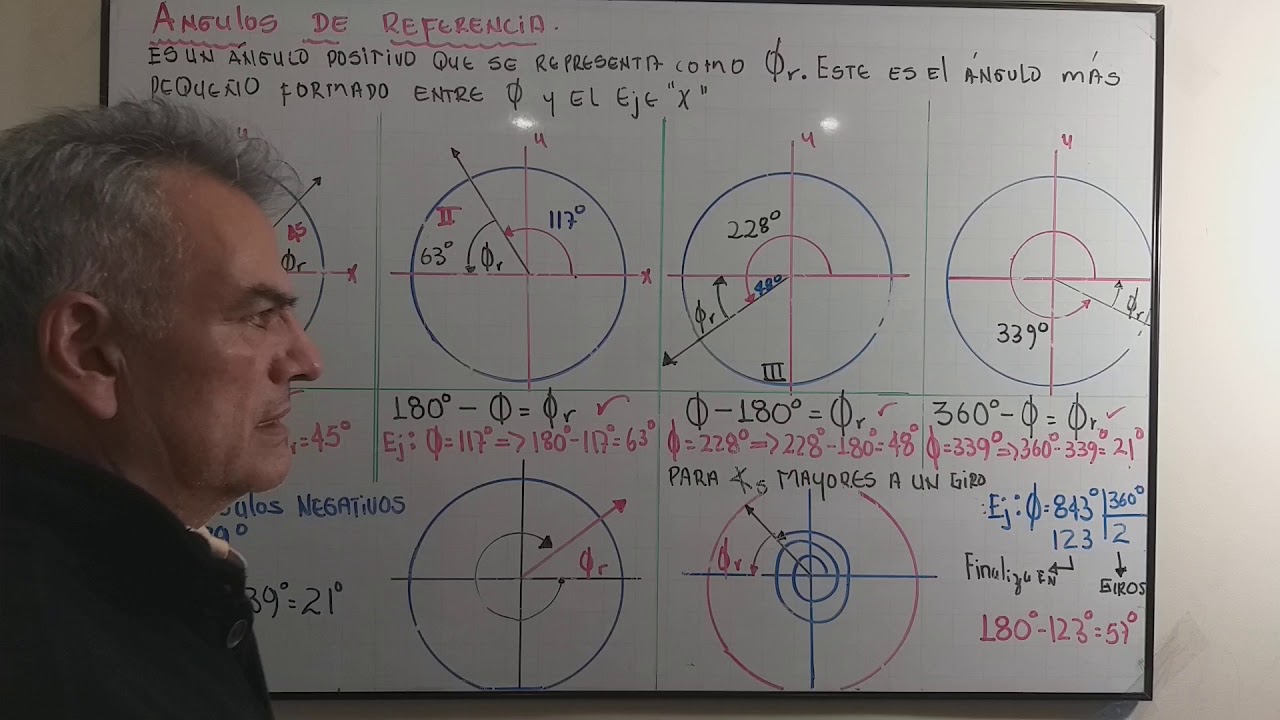 ÁNGULOS DE REFERENCIA.
ES UN ÁNGULO POSITIVO QUE SE REPRESENTA COMO ϕr. ESTE ES El ÁNGULO MÁS
PEQUEÑO FORMADO ENTRE ϕ Y EL EjE "X"
45
ϕr
x
y
II
117°
63°
ϕr
x
y
228°
48°
ϕr
III
y
339°
ϕr
=45°
180°-ϕ=ϕr ✓
Ej: ϕ=117°=>180°-117°=63°
ϕ-180°=ϕr ✓
ϕ=228°=>228°-180°=48°
360°-ϕ=ϕr ✓
ϕ=339°=>360°-339°=21°
NEGATIVOS
39°=21°
ϕr
PARA ∡s MAYORES A UN GIRO
ϕr
:Ej: ϕ=843° |360°
123 2
Finaliza EN
GIROS
180°-123°=57°